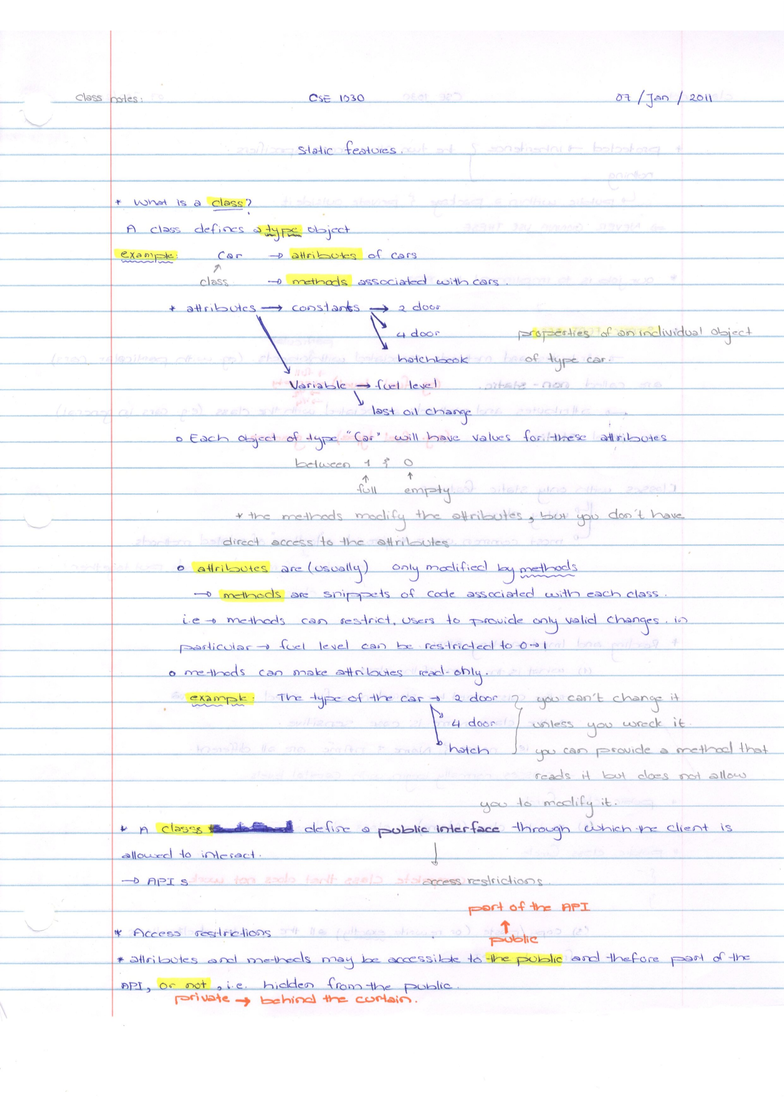 class notes: CSE 1030 07 / Jan / 2011
Static features.
* What is a class?
A class defines a type object
example: Car → attributes of cars
↑
class → methods associated with cars.
* attributes → constants → 2 door
4 door properties of an individual object
hatchbook of type car.
Variable → fuel level
last oil change
o Each object of type "Car" will have values for these attributes
between 1 & 0
↑ ↑
full empty
* the methods modify the attributes, but you don't have
direct access to the attributes
o attributes are (usually) only modified by methods
→ methods are snippets of code associated with each class.
i.e → methods can restrict, users to provide only valid changes. in
particular → fuel level can be restricted to 0→1
o methods can make attributes read-only.
example: The type of the car → 2 door you can't change it
4 door unless you wreck it.
hatch you can provide a method that
reads it but does not allow
you to modify it.
* A class define a public interface through which the client is
allowed to interact.
→ API s access restrictions.
part of the API
↑
* Access restrictions public
* attributes and methods may be accessible to the public and thefore part of the
API, or not, i.e. hidden from the public.
private → behind the curtain.